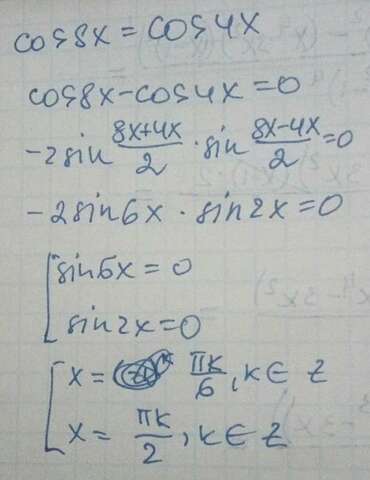 cos8x = cos4x
cos8x - cos4x = 0
-2sin (8x+4x)/2 · sin (8x-4x)/2 = 0
-2sin6x · sin2x = 0
[ sin6x = 0
sin2x = 0
[ x = πk/6, k ∈ Z
x = πk/2, k ∈ Z